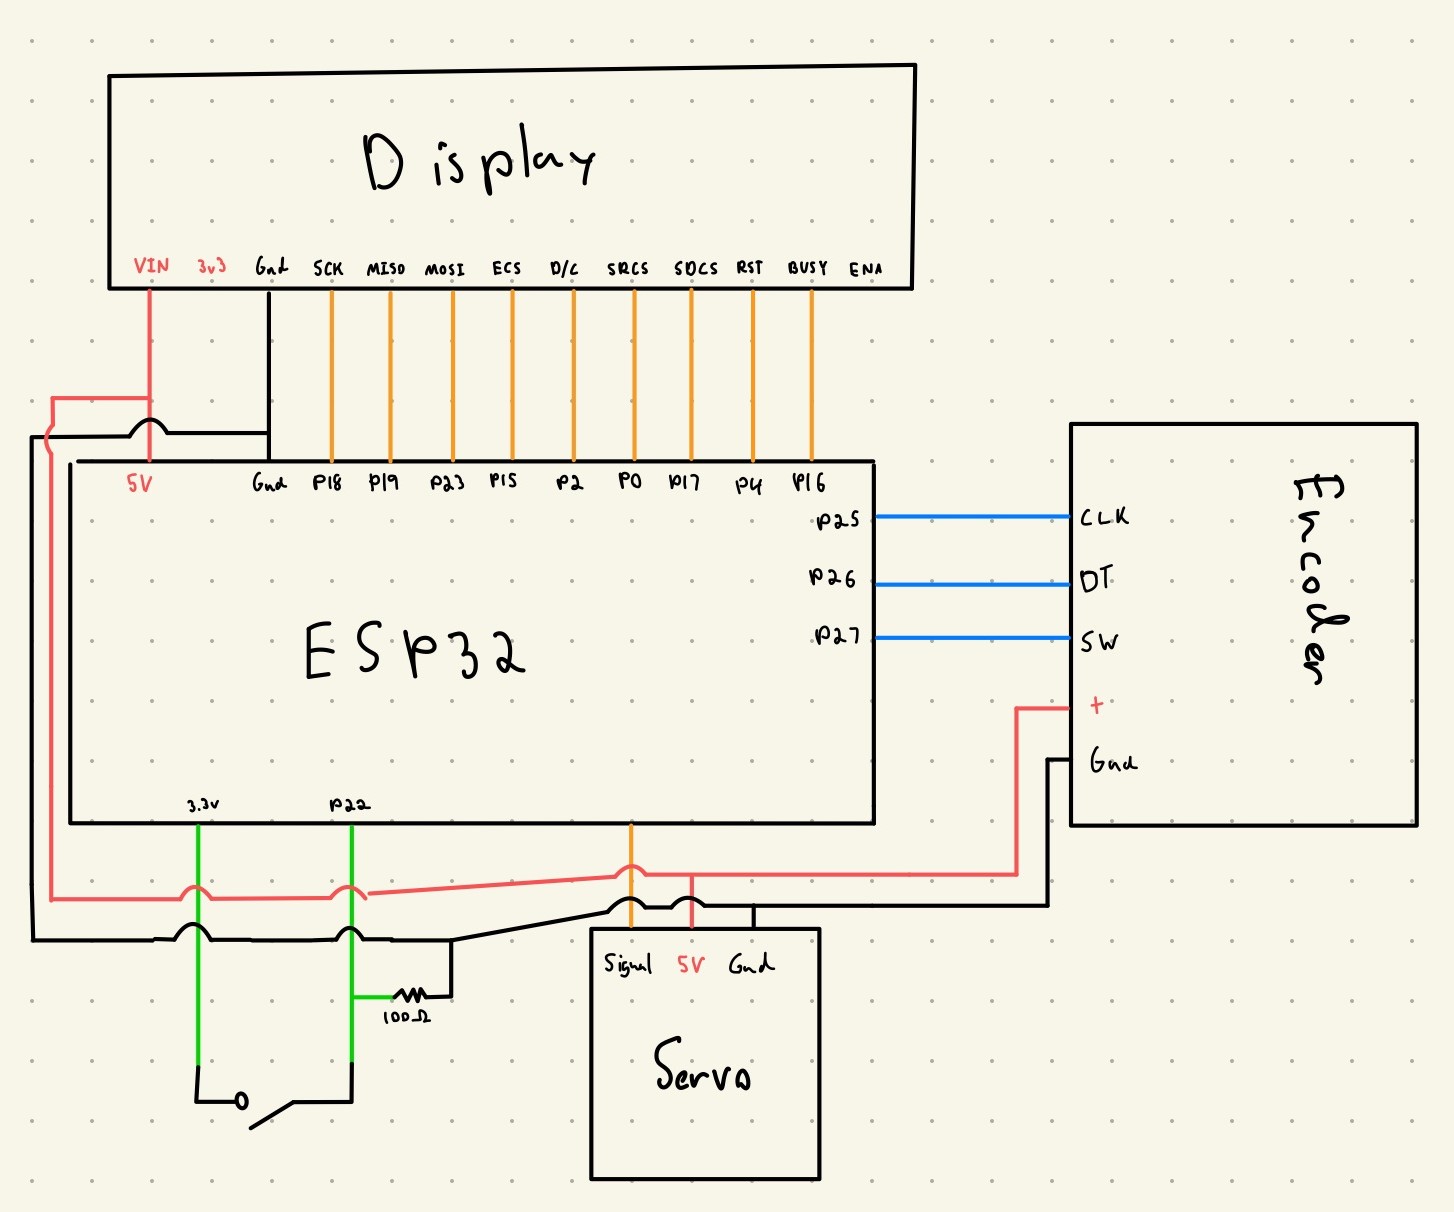 Display
VIN 3v3 Gnd SCK MISO MOSI ECS D/C SRCS SDCS RST BUSY ENA
5V Gnd P18 P19 P23 P15 P2 P0 P17 P4 P16
P25
P26
P27
ESP32
3.3v P22
CLK
DT
SW
+
Gnd
Encoder
100Ω
Signal 5V Gnd
Servo